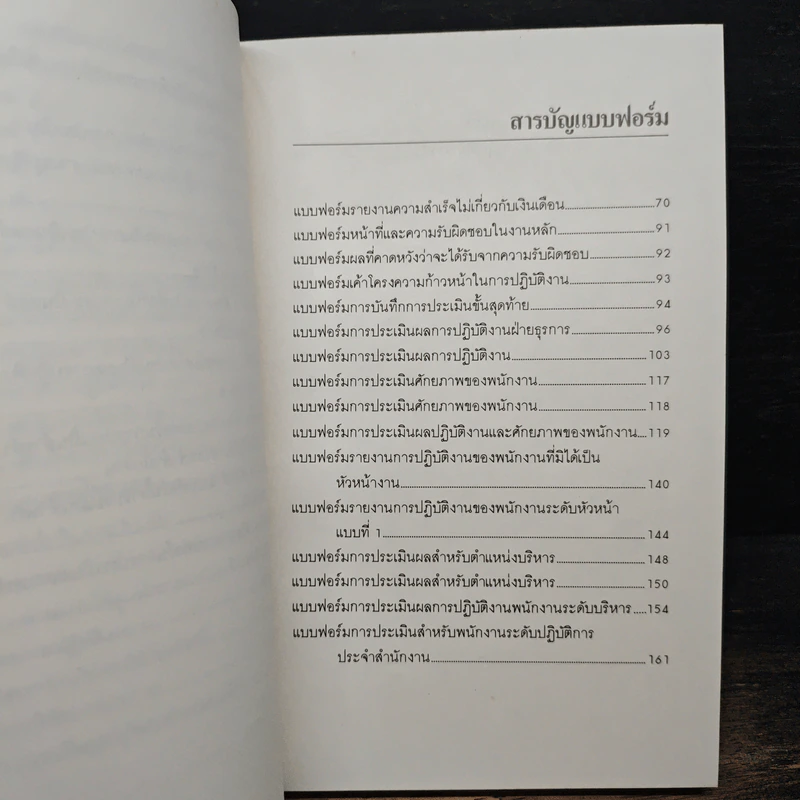 สารบัญแบบฟอร์ม
แบบฟอร์มรายงานความสำเร็จไม่เกี่ยวกับเงินเดือน 70
แบบฟอร์มหน้าที่และความรับผิดชอบในงานหลัก 91
แบบฟอร์มผลที่คาดหวังว่าจะได้รับจากความรับผิดชอบ 92
แบบฟอร์มเค้าโครงความก้าวหน้าในการปฏิบัติงาน 93
แบบฟอร์มการบันทึกการประเมินขั้นสุดท้าย 94
แบบฟอร์มการประเมินผลการปฏิบัติงานฝ่ายธุรการ 96
แบบฟอร์มการประเมินผลการปฏิบัติงาน 103
แบบฟอร์มการประเมินศักยภาพของพนักงาน 117
แบบฟอร์มการประเมินศักยภาพของพนักงาน 118
แบบฟอร์มการประเมินผลปฏิบัติงานและศักยภาพของพนักงาน 119
แบบฟอร์มรายงานการปฏิบัติงานของพนักงานที่มิได้เป็น
หัวหน้างาน 140
แบบฟอร์มรายงานการปฏิบัติงานของพนักงานระดับหัวหน้า
แบบที่ 1 144
แบบฟอร์มการประเมินผลสำหรับตำแหน่งบริหาร 148
แบบฟอร์มการประเมินผลสำหรับตำแหน่งบริหาร 150
แบบฟอร์มการประเมินผลการปฏิบัติงานพนักงานระดับบริหาร 154
แบบฟอร์มการประเมินสำหรับพนักงานระดับปฏิบัติการ
ประจำสำนักงาน 161